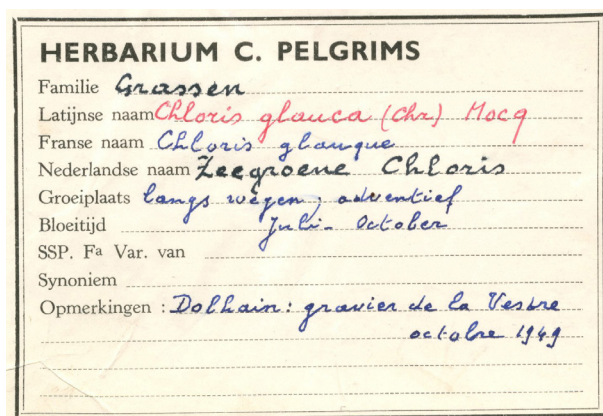 HERBARIUM C. PELGRIMS
Familie Grassen
Latijnse naam Chloris glauca (Chr) Mocq
Franse naam Chloris glauque
Nederlandse naam Zeegroene Chloris
Groeiplaats langs wegen; adventief
Bloeitijd Juli - October
SSP. Fa Var. van
Synoniem
Opmerkingen : Dolhain: gravier de la Vesdre
octobre 1949